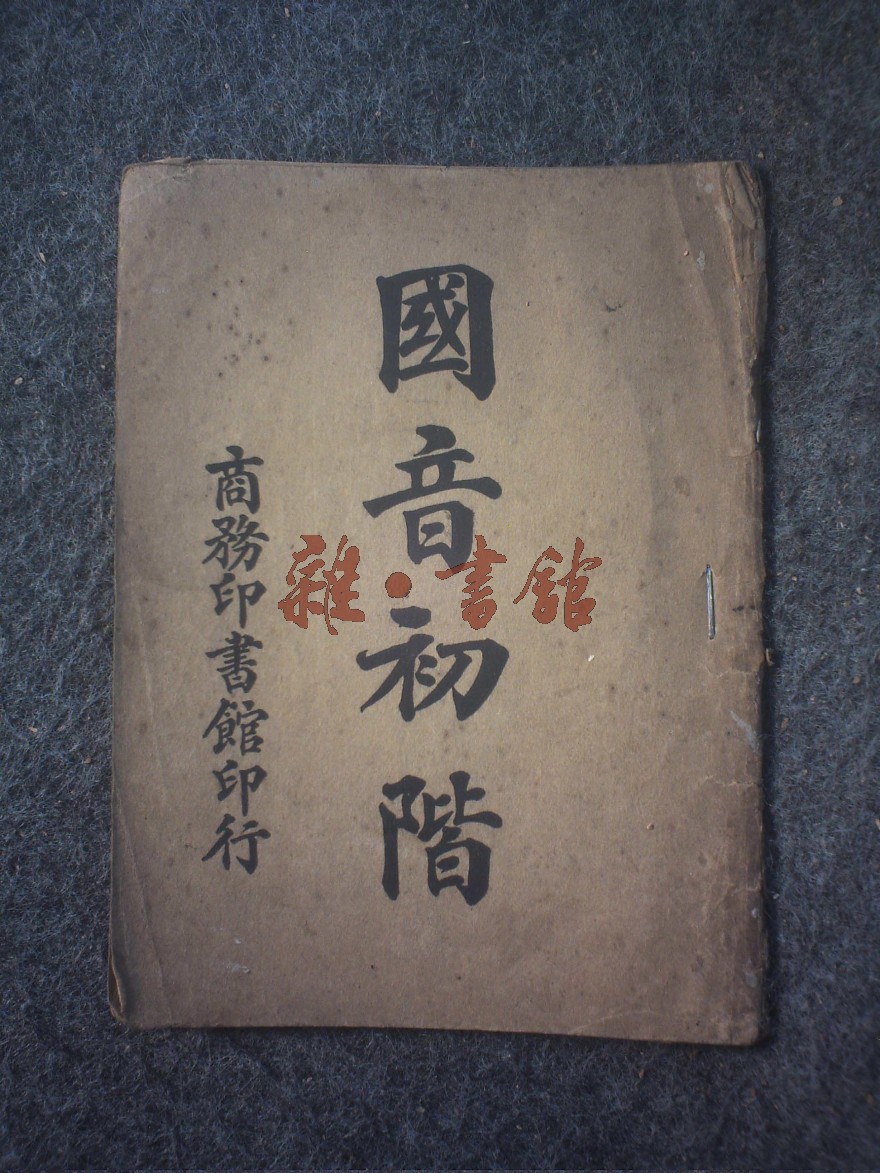 國音初階
商務印書館印行
雜·書館